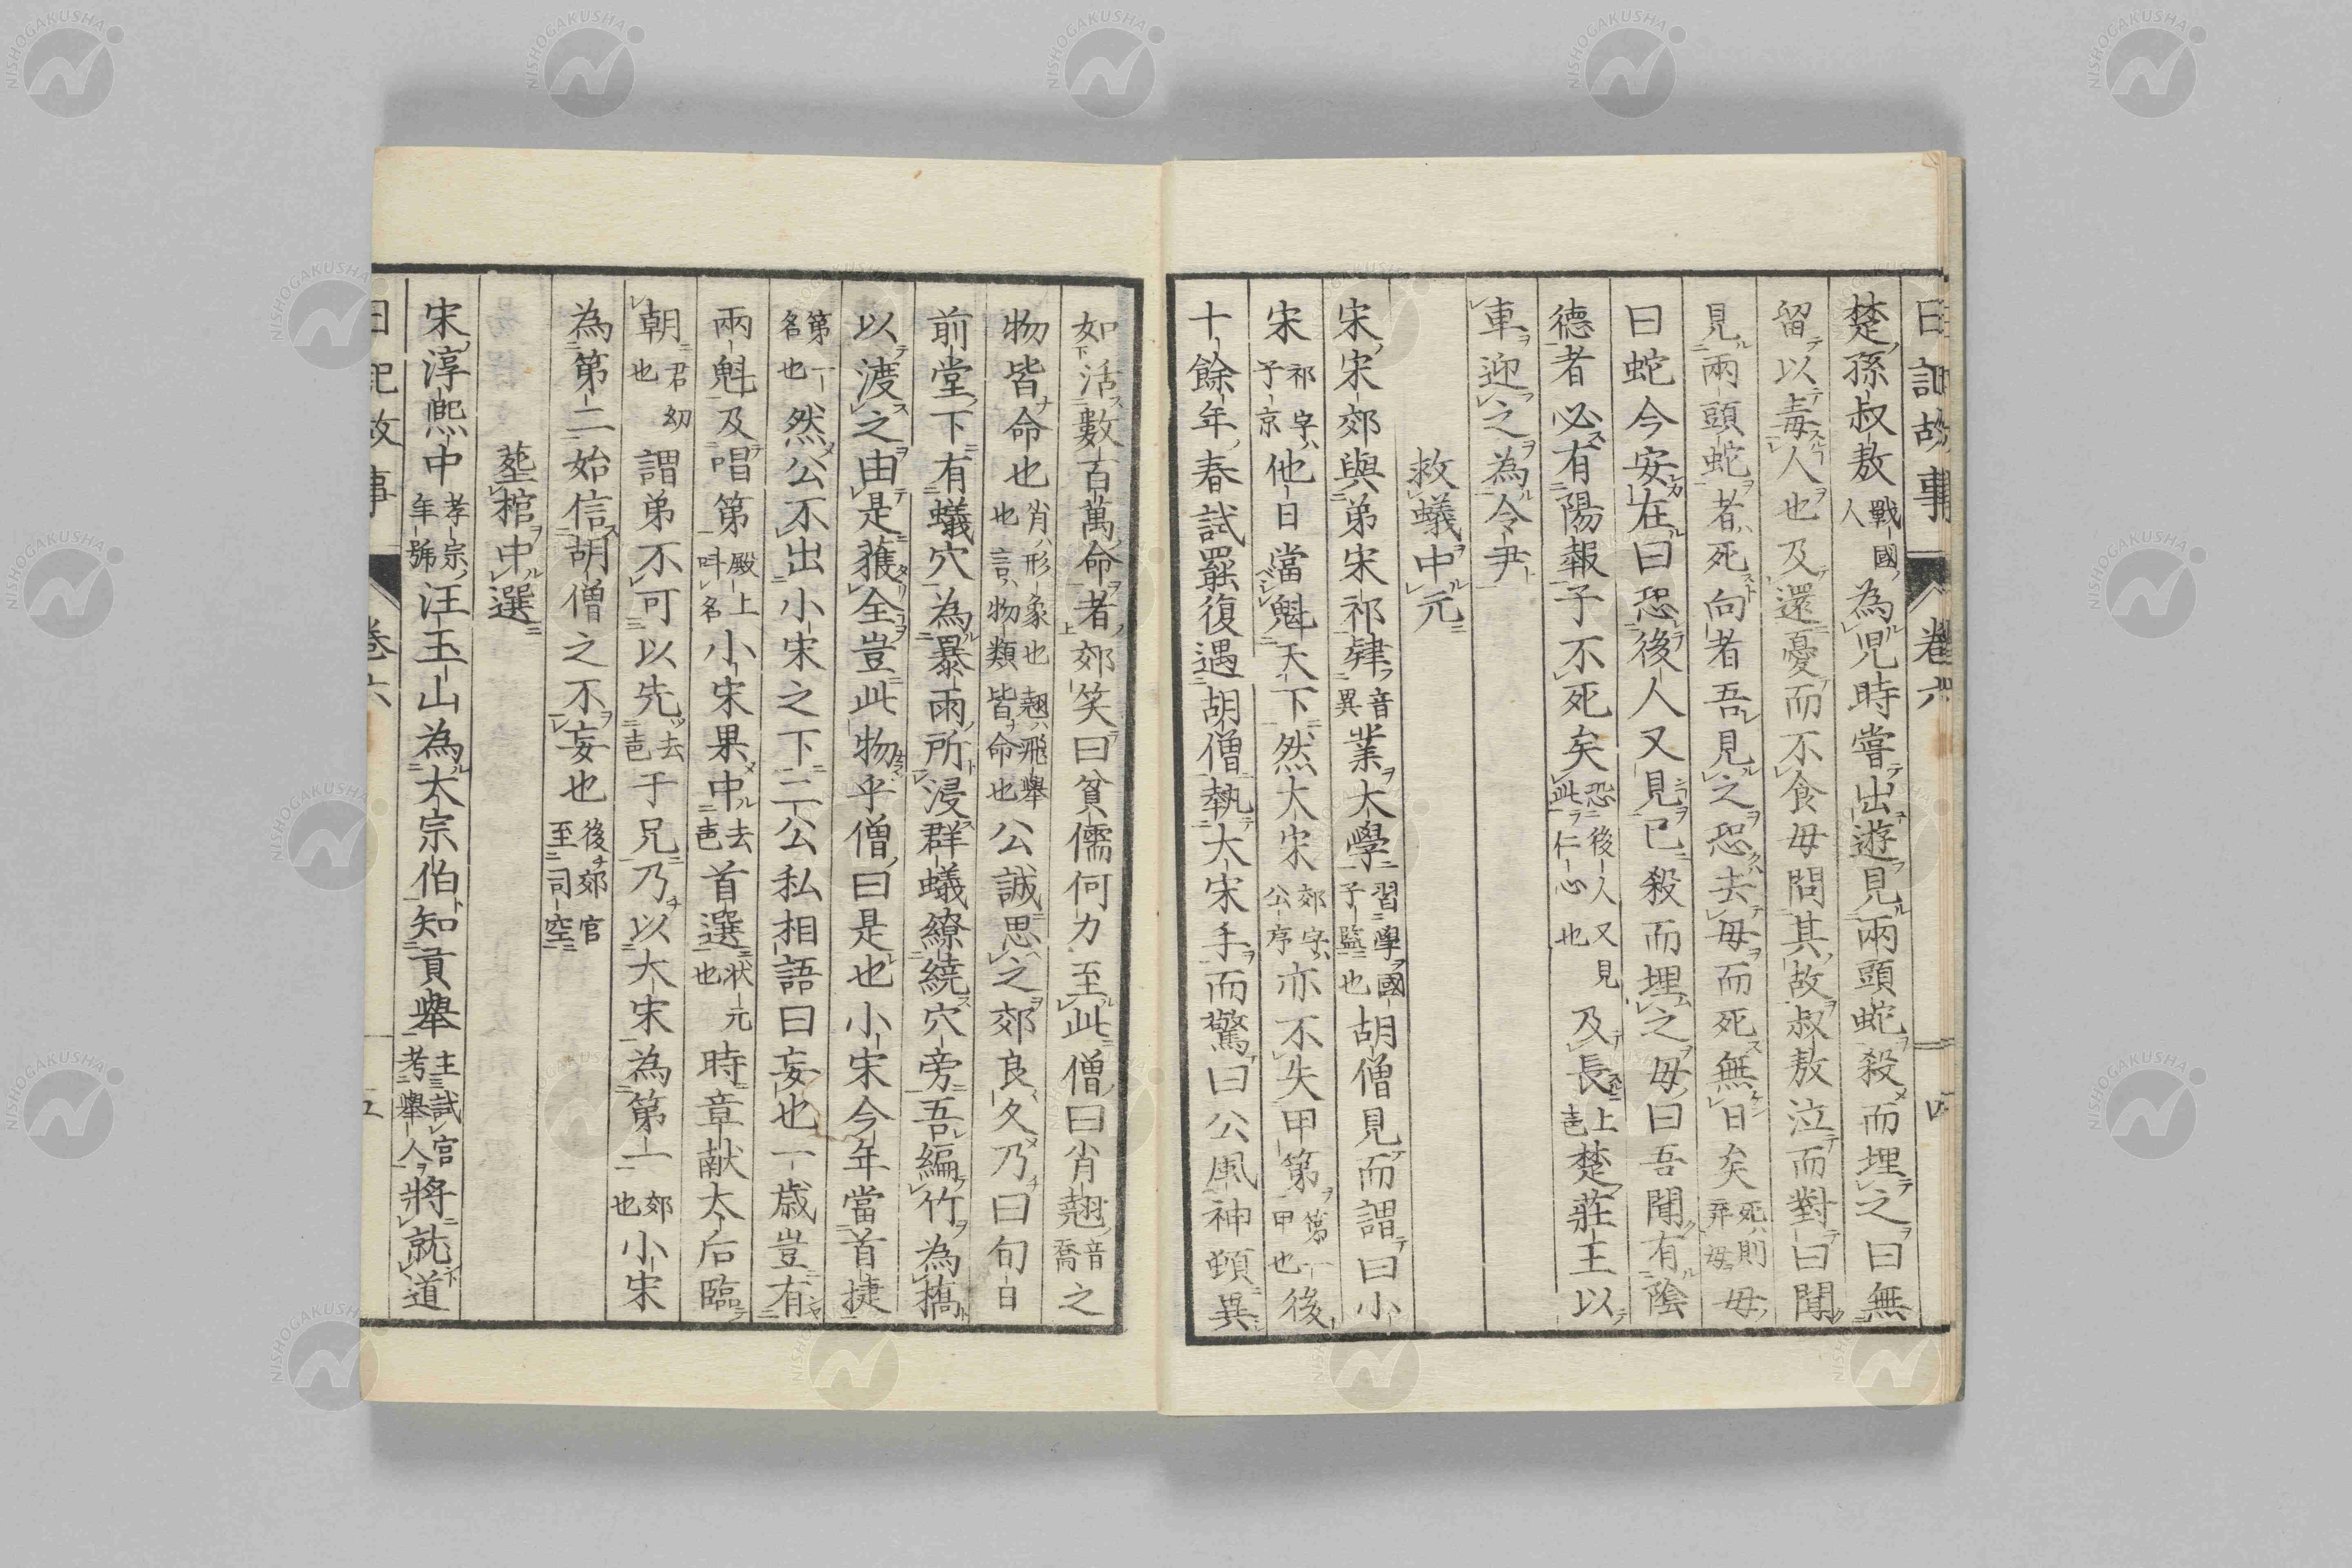 日記故事 卷六 四
楚孫叔敖戰國人為兒時嘗出遊見兩頭蛇殺而埋之曰無
留以毒人也及還憂而不食毋問其故叔敖泣而對曰聞
見兩頭蛇者死向者吾見之恐去毋而死無日矣死則弃毋毋
曰蛇今安在曰恐後人又見已殺而埋之毋曰吾聞有陰
德者必有陽報子不死矣恐後人又見此仁心也及長上声楚莊王以
車迎之為令尹
救蟻中元
宋宋郊與弟宋祁肄音異業大學習學國子監也胡僧見而謂曰小
宋祁字子京他日當魁天下然大宋郊字公序亦不失甲第第一甲也後
十餘年春試罷復遇胡僧執大宋手而驚曰公風神頓異
如活數百萬命者郊笑曰貧儒何力至此僧曰肖翹音喬之
物皆命也肖形象也翹飛舉也言物類皆命也公誠思之郊良久乃曰旬日
前堂下有蟻穴為暴雨所浸群蟻繚繞穴旁吾編竹為橋
以渡之由是獲全豈此物乎僧曰是也小宋今年當首捷
第一名也然公不出小宋之下二公私相語曰妄也一歳豈有
兩魁及唱第殿上叫名小宋果中去声首選状元也時章献太后臨
朝君幼也謂弟不可以先去声于兄乃以大宋為第一郊也小宋
為第二始信胡僧之不妄也後郊官至司空
塟棺中選
宋淳熙中孝宗年號汪玉山為大宗伯知貢舉主試官考舉人將就道
日記故事 卷六 五
NISHOGAKUSHA